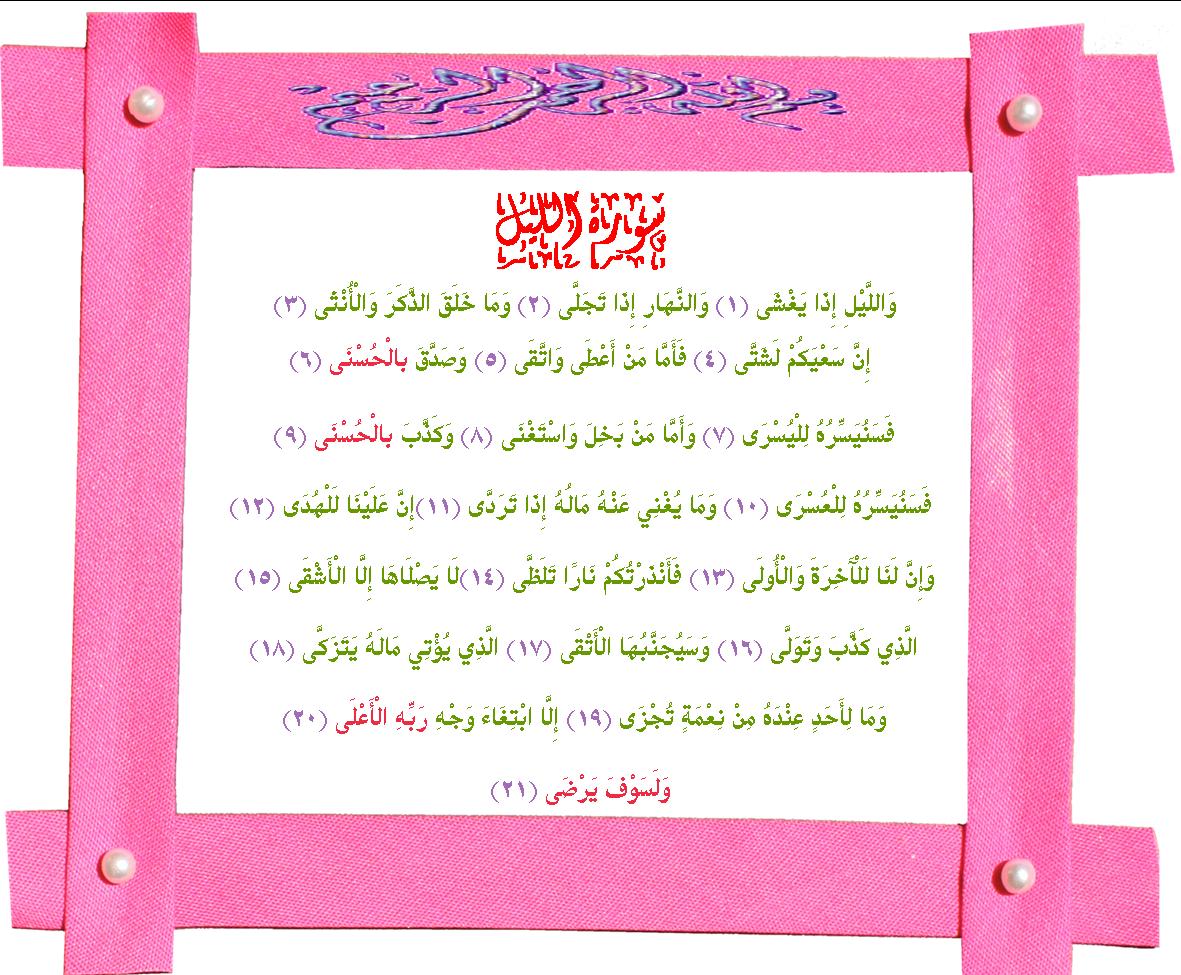 بسم الله الرحمن الرحيم
سورة الليل
وَاللَّيْلِ إِذَا يَغْشَى (١) وَالنَّهَارِ إِذَا تَجَلَّى (٢) وَمَا خَلَقَ الذَّكَرَ وَالْأُنْثَى (٣)
إِنَّ سَعْيَكُمْ لَشَتَّى (٤) فَأَمَّا مَنْ أَعْطَى وَاتَّقَى (٥) وَصَدَّقَ بِالْحُسْنَى (٦)
فَسَنُيَسِّرُهُ لِلْيُسْرَى (٧) وَأَمَّا مَنْ بَخِلَ وَاسْتَغْنَى (٨) وَكَذَّبَ بِالْحُسْنَى (٩)
فَسَنُيَسِّرُهُ لِلْعُسْرَى (١٠) وَمَا يُغْنِي عَنْهُ مَالُهُ إِذَا تَرَدَّى (١١)إِنَّ عَلَيْنَا لَلْهُدَى (١٢)
وَإِنَّ لَنَا لَلْآَخِرَةَ وَالْأُولَى (١٣) فَأَنْذَرْتُكُمْ نَارًا تَلَظَّى (١٤)لَا يَصْلَاهَا إِلَّا الْأَشْقَى (١٥)
الَّذِي كَذَّبَ وَتَوَلَّى (١٦) وَسَيُجَنَّبُهَا الْأَتْقَى (١٧) الَّذِي يُؤْتِي مَالَهُ يَتَزَكَّى (١٨)
وَمَا لِأَحَدٍ عِنْدَهُ مِنْ نِعْمَةٍ تُجْزَى (١٩) إِلَّا ابْتِغَاءَ وَجْهِ رَبِّهِ الْأَعْلَى (٢٠)
وَلَسَوْفَ يَرْضَى (٢١)